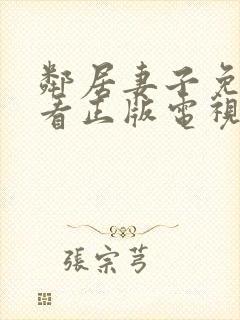 鄰居妻子免
看正版電視
張宗芎